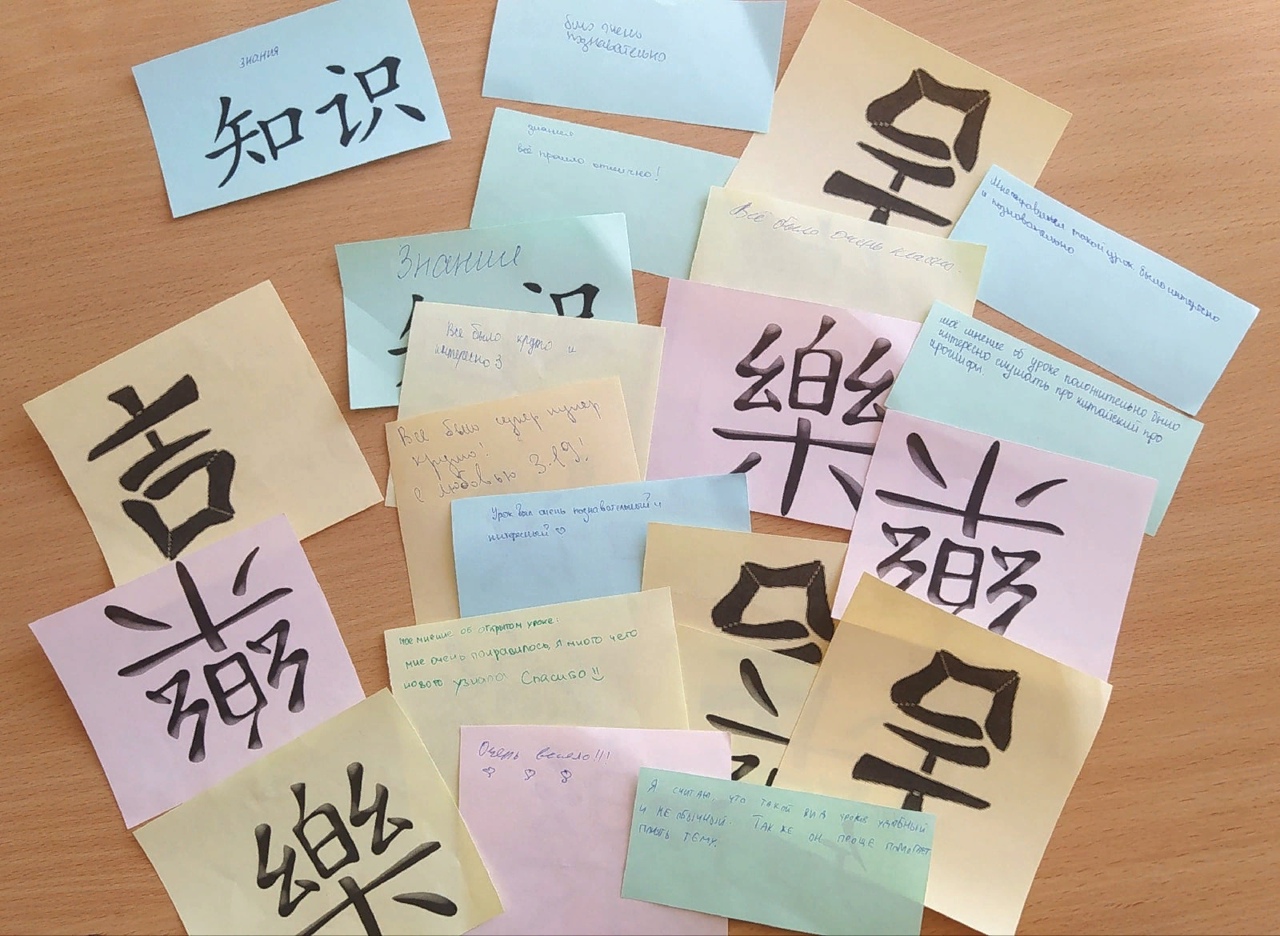 знания
知识
было очень
познавательно
знания
всё прошло отлично!
吉
Всё было очень классно.
Мне понравился такой урок было интересно
и познавательно
Знание
识
Всё было круто и
интересно 3
моё мнение об уроке положительно было
интересно слушать про китайский про
樂
Всё было супер пупер
круто!
с любовью
吉
樂
Урок был очень познавательный и
интересный ♡
吉
樂
мое мнение об открытом уроке:
мне очень понравилось, я много чего
нового узнала Спасибо!!
吉
樂
Очень весело!!!
Я считаю, что такой вид урока удобный
и не обычный. Так же он проще помогает
понять тему.